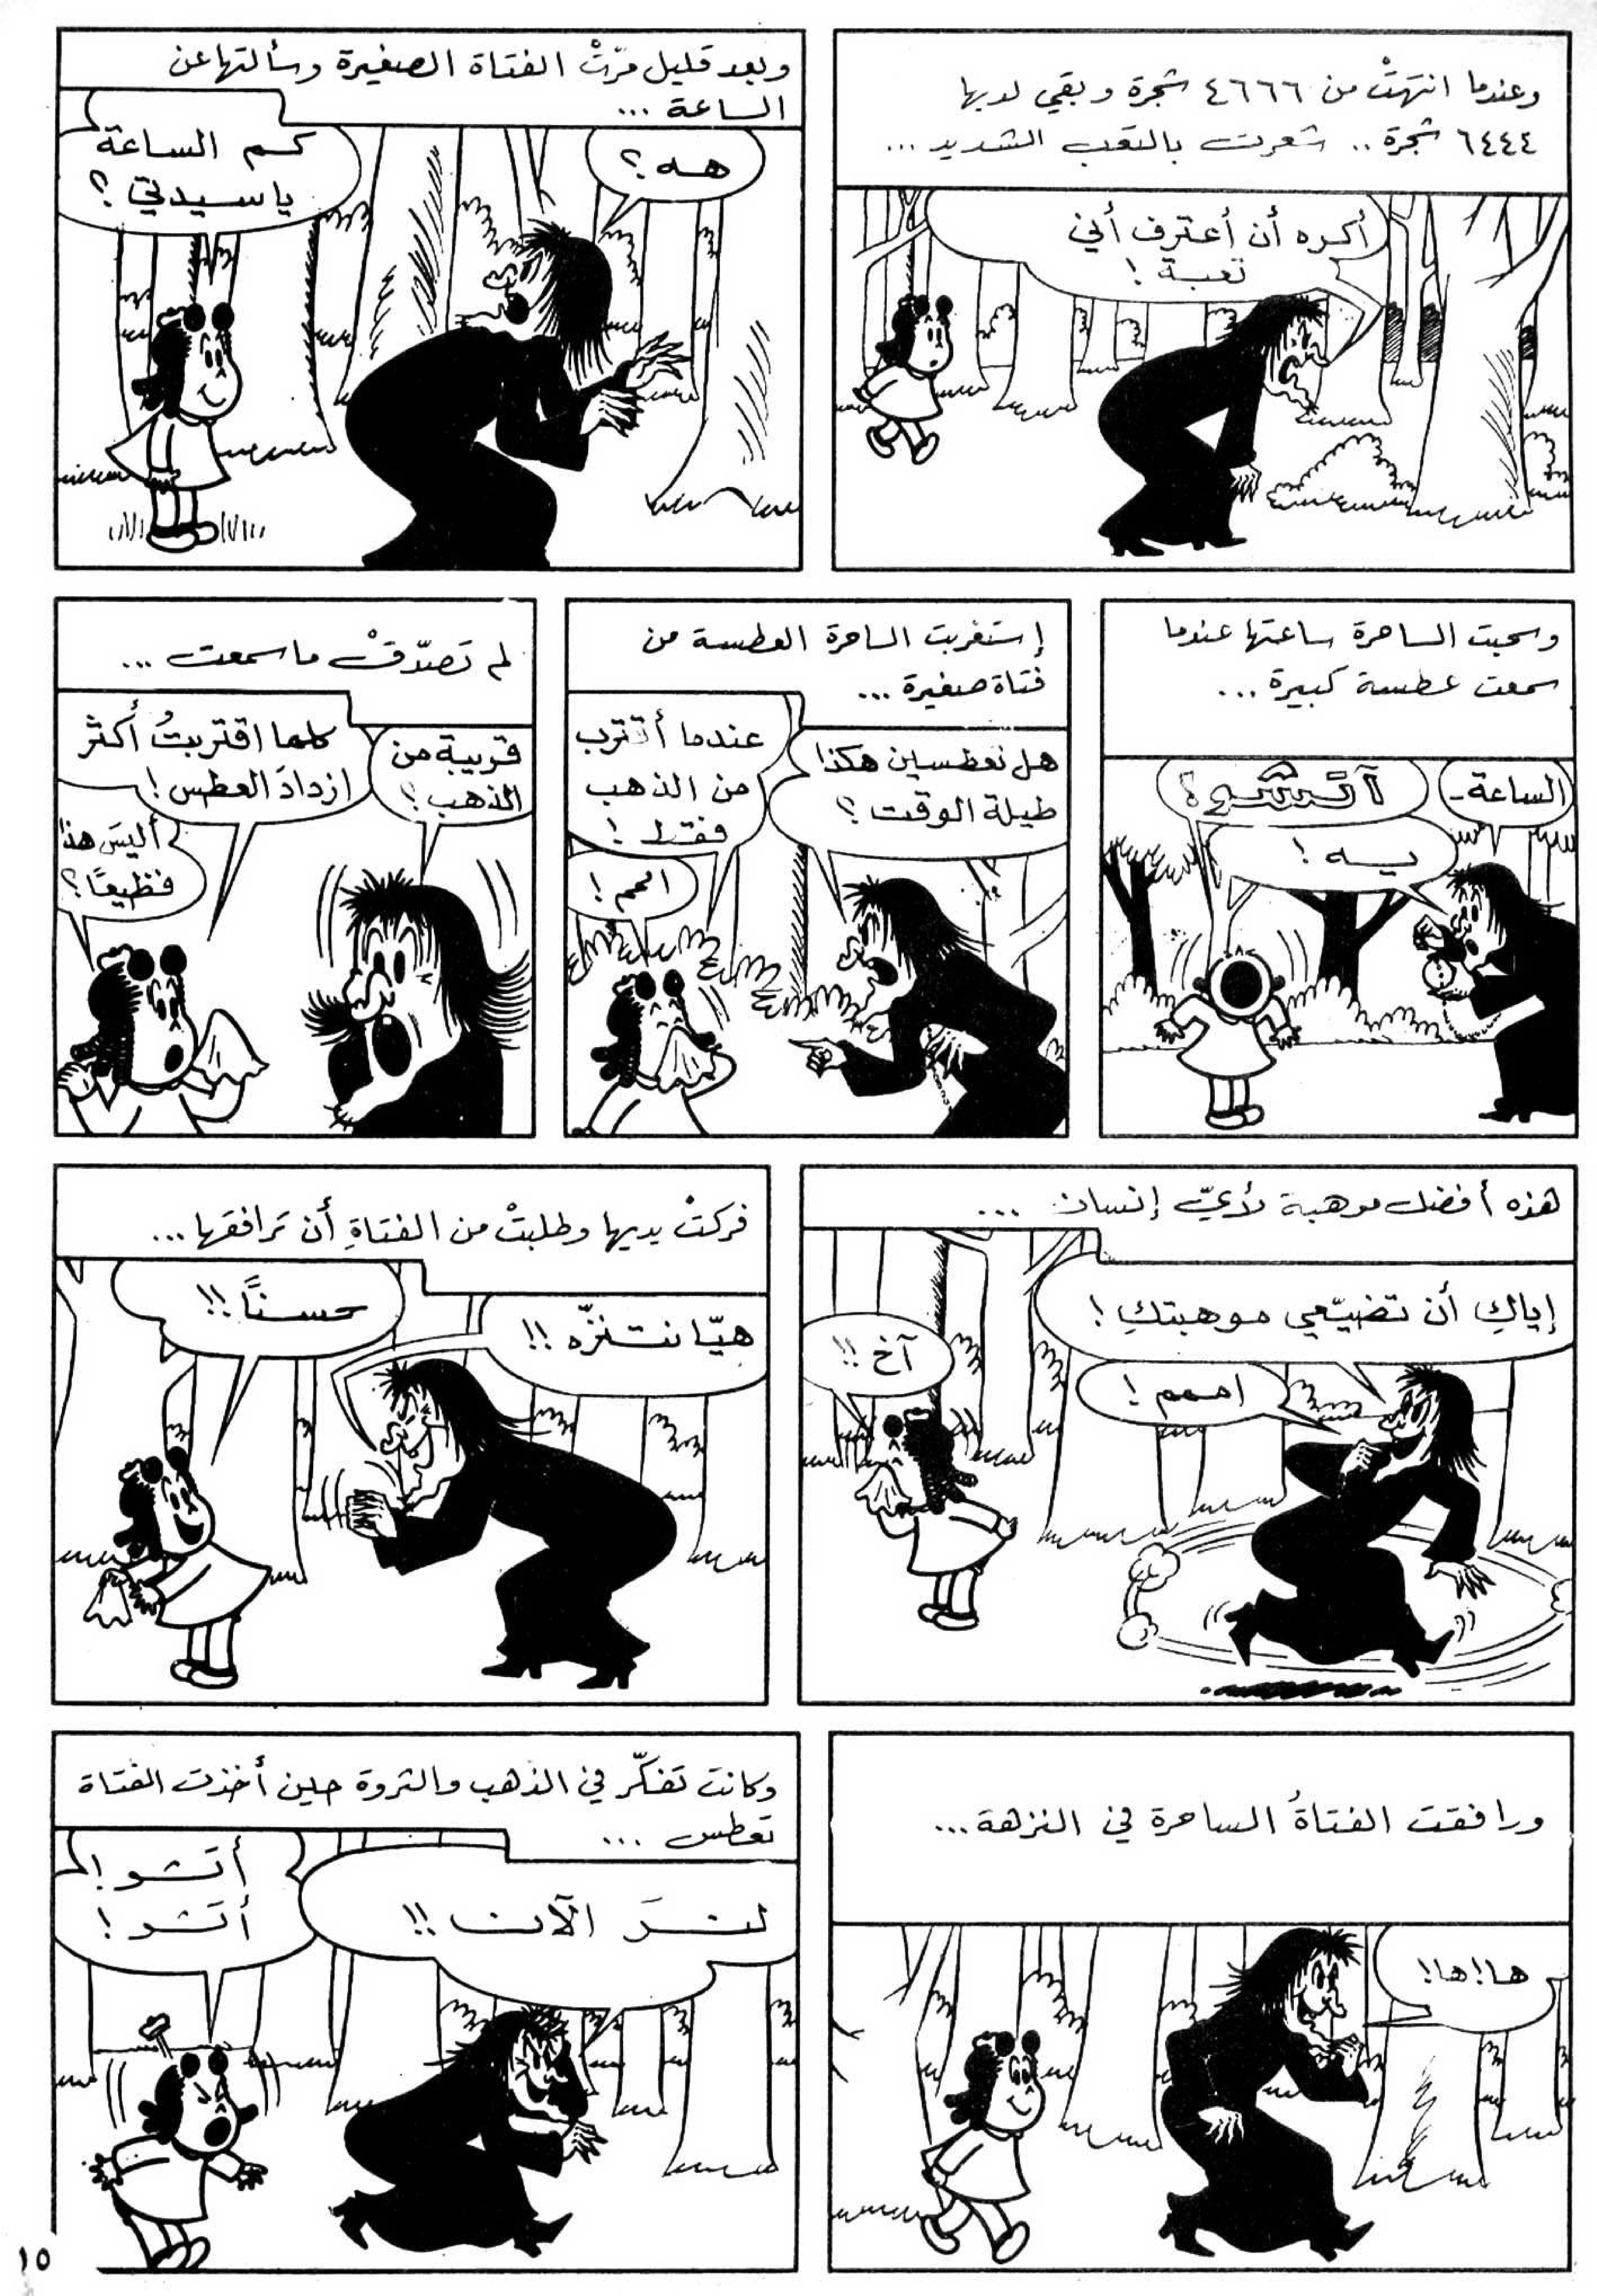 وعندما انتهتْ من ٤٦٦٦ شجرة وبقي لديها
٦٤٤٤ شجرة .. شعرت بالتعب الشديد ...
أكره أن أعترف أني
تعبة !
وبعد قليل مرّتْ الفتاة الصغيرة وسألتها عن
الساعة ...
هه ؟
كم الساعة
يا سيدتي ؟
وسحبت الساحرة ساعتها عندما
سمعت عطسة كبيرة ...
الساعة -
آتشو !
يسه !
إستغربت الساحرة العطسة من
فتاة صغيرة ...
هل تعطسين هكذا
طيلة الوقت ؟
عندما أقترب
من الذهب
فقط !
امم !
لم تصدّقْ ما سمعت ...
قريبة من
الذهب ؟
كلما اقتربتُ أكثر
ازدادَ العطس !
أليسَ هذا
فظيعًا ؟
هذه أفضل موهبة لأيّ إنسان ...
إياكِ أن تضيّعي موهبتكِ !
امممم !
آخ !!
فركتْ يديها وطلبتْ من الفتاةِ أن ترافقها ...
هيّا نتنزّه !!
حسنًا !!
ورافقت الفتاةُ الساحرة في النزهة ...
ها ! ها !
وكانت تفكّر في الذهب والثروة حين أخذت الفتاة
تعطس ...
لنرَ الآن !!
أتشو !
أتشو !
١٥